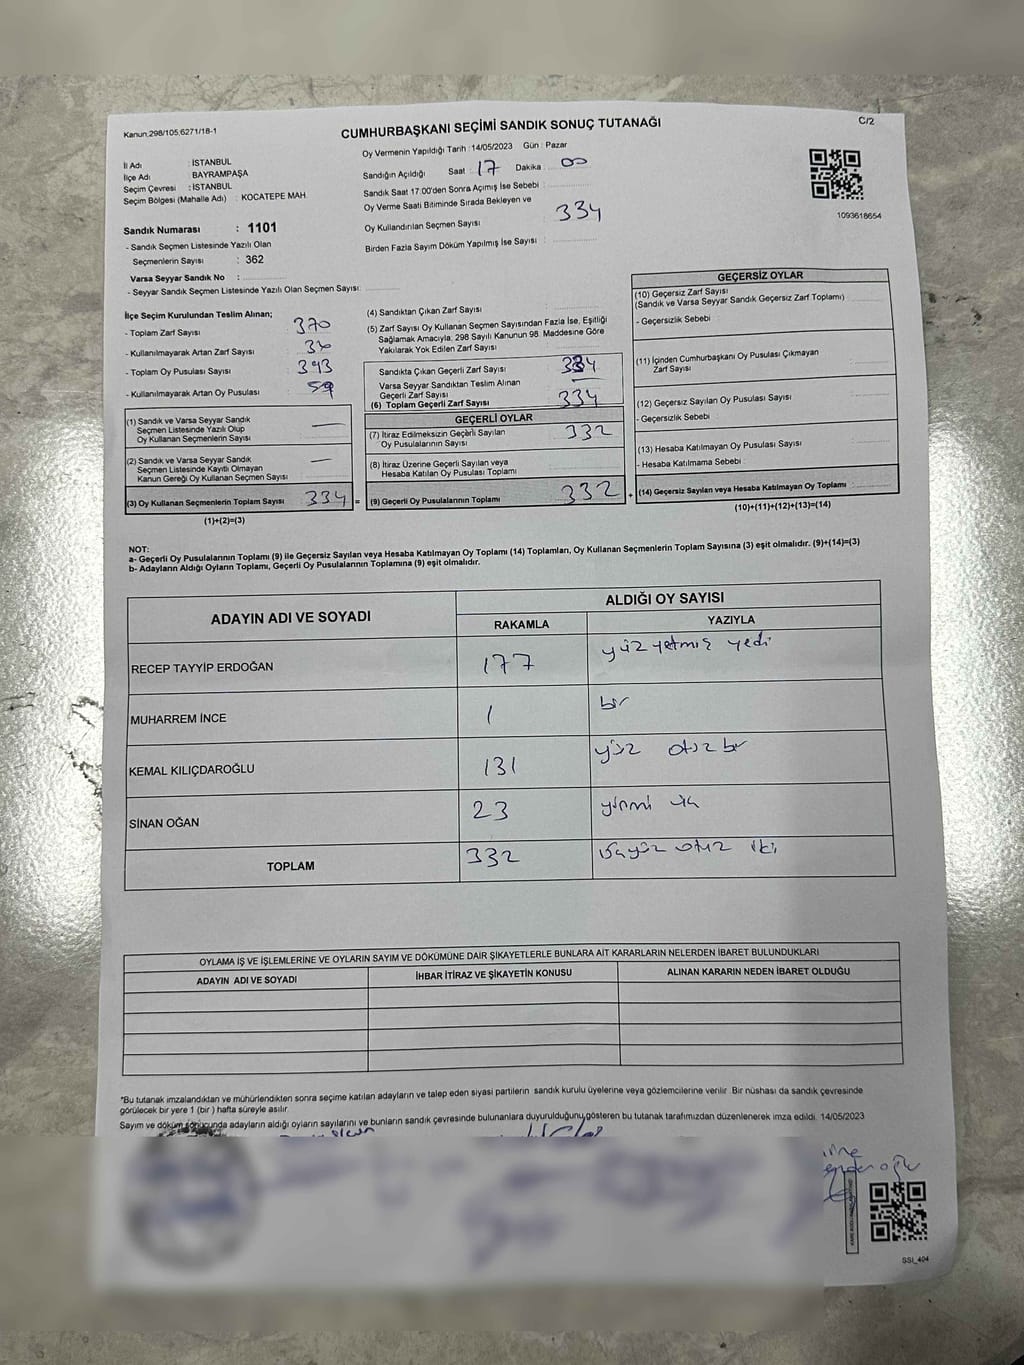 Kanun:298/105;6271/18-1
CUMHURBAŞKANI SEÇİMİ SANDIK SONUÇ TUTANAĞI
C/2
İl Adı : İSTANBUL
İlçe Adı : BAYRAMPAŞA
Seçim Çevresi : İSTANBUL
Seçim Bölgesi (Mahalle Adı) : KOCATEPE MAH
Sandık Numarası : 1101
- Sandık Seçmen Listesinde Yazılı Olan
Seçmenlerin Sayısı : 362
Varsa Seyyar Sandık No :
- Seyyar Sandık Seçmen Listesinde Yazılı Olan Seçmen Sayısı:
Oy Vermenin Yapıldığı Tarih : 14/05/2023 Gün : Pazar
Sandığın Açıldığı Saat 17 Dakika : 00
Sandık Saat 17:00'den Sonra Açımış İse Sebebi :
Oy Verme Saati Bitiminde Sırada Bekleyen ve
Oy Kullandırılan Seçmen Sayısı : 334
Birden Fazla Sayım Döküm Yapılmış İse Sayısı :
1093618654
İlçe Seçim Kurulundan Teslim Alınan;
- Toplam Zarf Sayısı : 370
- Kullanılmayarak Artan Zarf Sayısı :
- Toplam Oy Pusulası Sayısı : 393
- Kullanılmayarak Artan Oy Pusulası : 59
(1) Sandık ve Varsa Seyyar Sandık
Seçmen Listesinde Yazılı Olup
Oy Kullanan Seçmenlerin Sayısı —
(2) Sandık ve Varsa Seyyar Sandık
Seçmen Listesinde Kayıtlı Olmayan
Kanun Gereği Oy Kullanan Seçmen Sayısı —
(3) Oy Kullanan Seçmenlerin Toplam Sayısı 334 =
(1)+(2)=(3)
(4) Sandıktan Çıkan Zarf Sayısı :
(5) Zarf Sayısı Oy Kullanan Seçmen Sayısından Fazla İse, Eşitliği
Sağlamak Amacıyla; 298 Sayılı Kanunun 98. Maddesine Göre
Yakılarak Yok Edilen Zarf Sayısı :
Sandıkta Çıkan Geçerli Zarf Sayısı : 334
Varsa Seyyar Sandıktan Teslim Alınan
Geçerli Zarf Sayısı : —
(6) Toplam Geçerli Zarf Sayısı : 334
GEÇERLİ OYLAR
(7) İtiraz Edilmeksizin Geçerli Sayılan
Oy Pusulalarının Sayısı : 332
(8) İtiraz Üzerine Geçerli Sayılan veya
Hesaba Katılan Oy Pusulası Toplamı :
(9) Geçerli Oy Pusulalarının Toplamı : 332 +
GEÇERSİZ OYLAR
(10) Geçersiz Zarf Sayısı
(Sandık ve Varsa Seyyar Sandık Geçersiz Zarf Toplamı) :
- Geçersizlik Sebebi :
(11) İçinden Cumhurbaşkanı Oy Pusulası Çıkmayan
Zarf Sayısı :
(12) Geçersiz Sayılan Oy Pusulası Sayısı :
- Geçersizlik Sebebi :
(13) Hesaba Katılmayan Oy Pusulası Sayısı :
- Hesaba Katılmama Sebebi :
(14) Geçersiz Sayılan veya Hesaba Katılmayan Oy Toplamı :
(10)+(11)+(12)+(13)=(14)
NOT:
a- Geçerli Oy Pusulalarının Toplamı (9) ile Geçersiz Sayılan veya Hesaba Katılmayan Oy Toplamı (14) Toplamları, Oy Kullanan Seçmenlerin Toplam Sayısına (3) eşit olmalıdır. (9)+(14)=(3)
b- Adayların Aldığı Oyların Toplamı, Geçerli Oy Pusulalarının Toplamına (9) eşit olmalıdır.
ADAYIN ADI VE SOYADI
ALDIĞI OY SAYISI
RAKAMLA YAZIYLA
RECEP TAYYİP ERDOĞAN 177 yüz yetmiş yedi
MUHARREM İNCE 1 bir
KEMAL KILIÇDAROĞLU 131 yüz otuz bir
SİNAN OĞAN 23 yirmi üç
TOPLAM 332 üçyüz otuz iki
OYLAMA İŞ VE İŞLEMLERİNE VE OYLARIN SAYIM VE DÖKÜMÜNE DAİR ŞİKAYETLERLE BUNLARA AİT KARARLARIN NELERDEN İBARET BULUNDUKLARI
ADAYIN ADI VE SOYADI İHBAR İTİRAZ VE ŞİKAYETİN KONUSU ALINAN KARARIN NEDEN İBARET OLDUĞU
*Bu tutanak imzalandıktan ve mühürlendikten sonra seçime katılan adayların ve talep eden siyasi partilerin sandık kurulu üyelerine veya gözlemcilerine verilir. Bir nüshası da sandık çevresinde
görülecek bir yere 1 (bir ) hafta süreyle asılır.
Sayım ve döküm sonucunda adayların aldığı oyların sayılarını ve bunların sandık çevresinde bulunanlara duyurulduğunu gösteren bu tutanak tarafımızdan düzenlenerek imza edildi. 14/05/2023
SSI_404